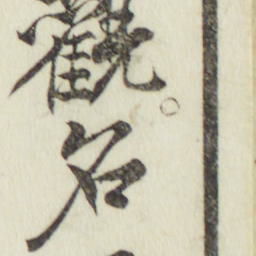 觀。名